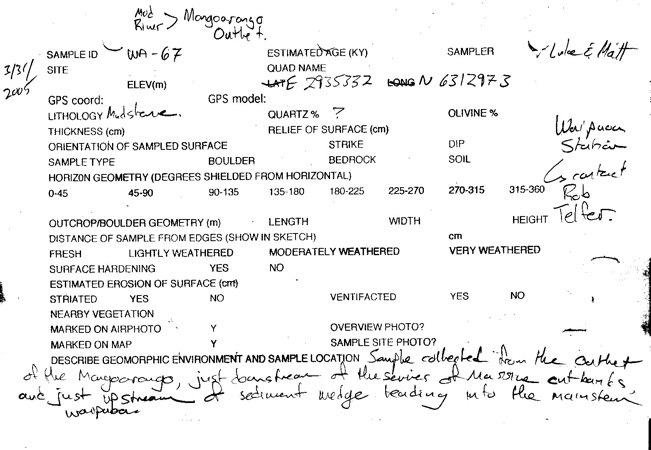 Mud River > Mangaorango Outlet.
3/31/2005
SAMPLE ID WA-67 ESTIMATED AGE (KY) SAMPLER Luke & Matt
SITE QUAD NAME
ELEV(m) LAT E 2935332 LONG N 6312973
GPS coord: GPS model:
LITHOLOGY Mudstone. QUARTZ % ? OLIVINE %
THICKNESS (cm) RELIEF OF SURFACE (cm)
ORIENTATION OF SAMPLED SURFACE STRIKE DIP
SAMPLE TYPE BOULDER BEDROCK SOIL
Station
contact
Rob
Telfer.
HORIZON GEOMETRY (DEGREES SHIELDED FROM HORIZONTAL)
0-45 45-90 90-135 135-180 180-225 225-270 270-315 315-360
OUTCROP/BOULDER GEOMETRY (m) LENGTH WIDTH HEIGHT
DISTANCE OF SAMPLE FROM EDGES (SHOW IN SKETCH) cm
FRESH LIGHTLY WEATHERED MODERATELY WEATHERED VERY WEATHERED
SURFACE HARDENING YES NO
ESTIMATED EROSION OF SURFACE (cm)
STRIATED YES NO VENTIFACTED YES NO
NEARBY VEGETATION
MARKED ON AIRPHOTO Y OVERVIEW PHOTO?
MARKED ON MAP Y SAMPLE SITE PHOTO?
DESCRIBE GEOMORPHIC ENVIRONMENT AND SAMPLE LOCATION Sample collected from the outlet
of the Mangaorango, just downstream of the series of Massive cutbanks,
and just upstream of sediment wedge leading into the mainstem